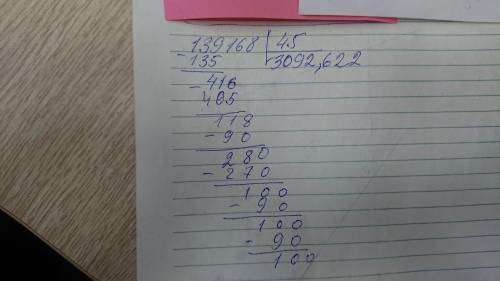 139168 | 45
- 135 3092,622
- 416
405
118
- 90
280
- 270
100
- 90
100
- 90
100